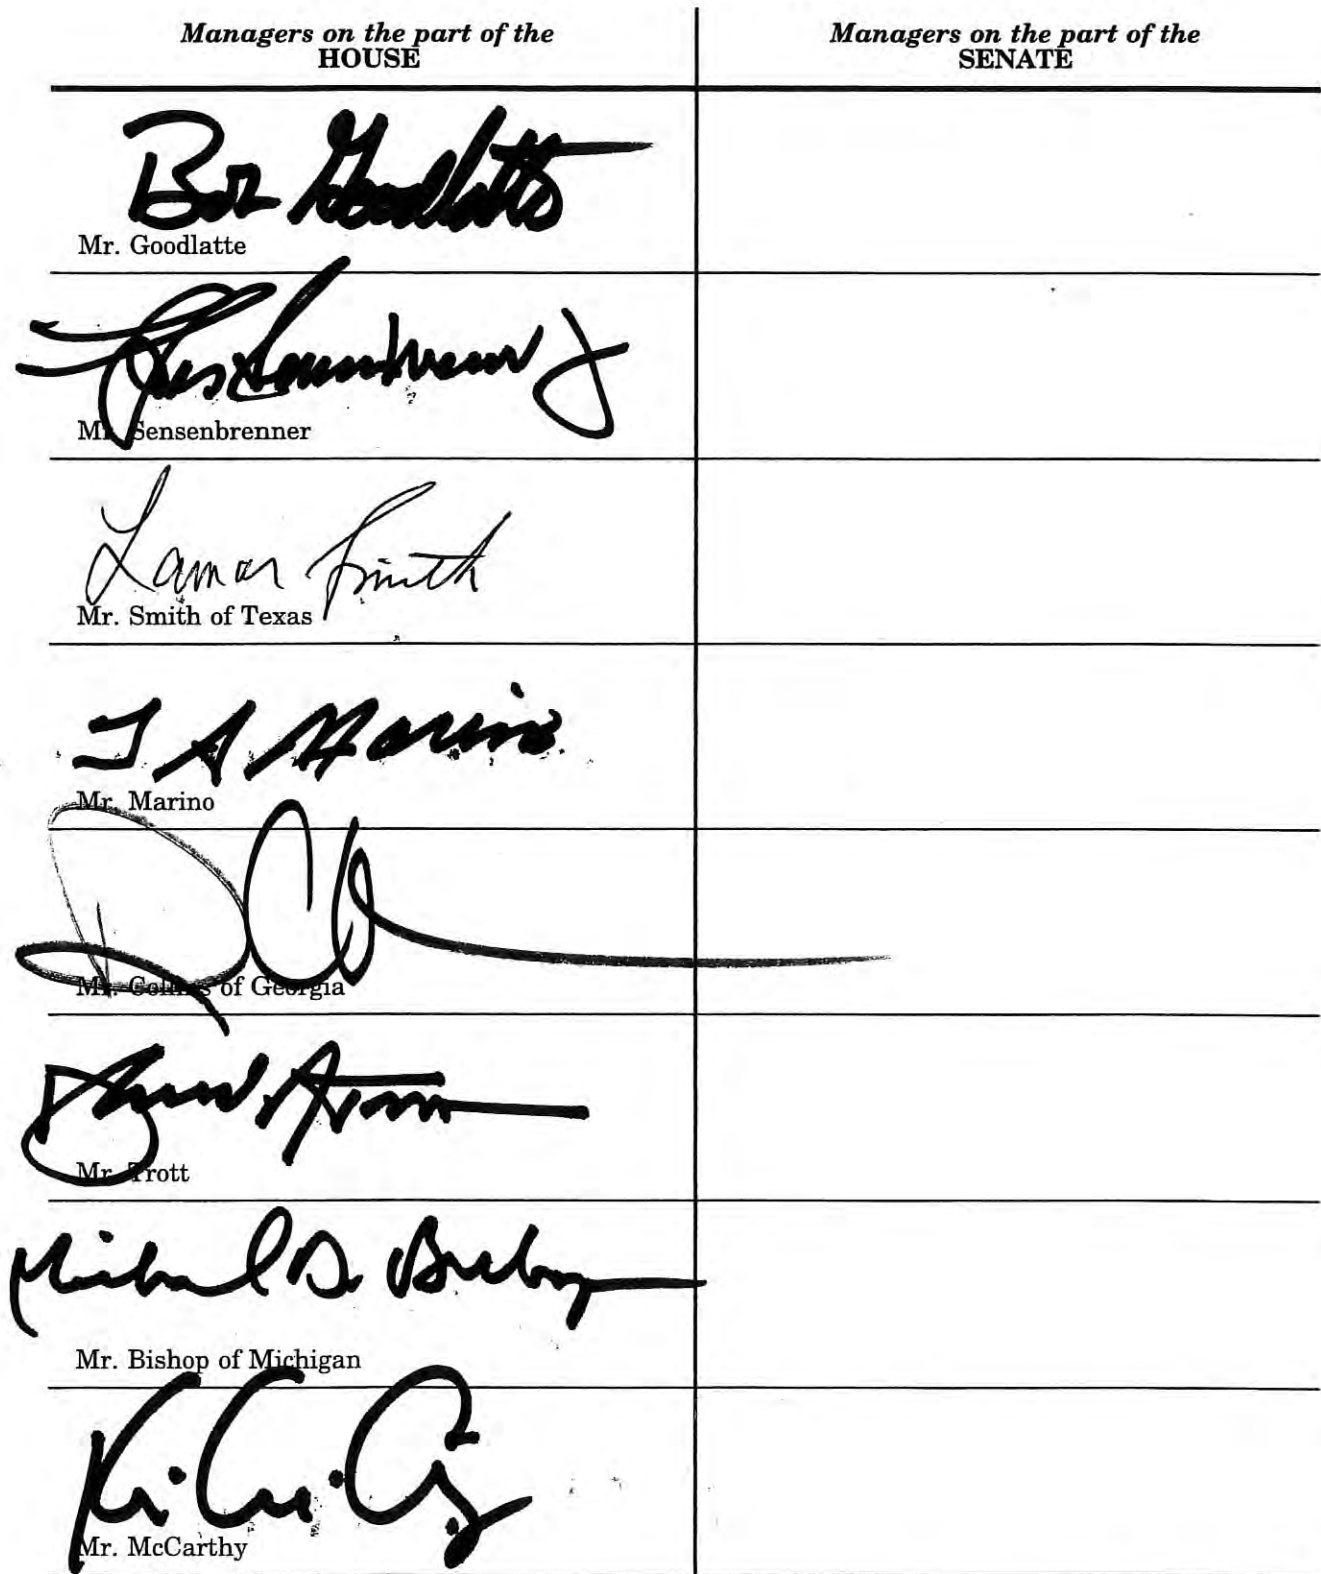 Managers on the part of the
HOUSE
Managers on the part of the
SENATE
Bob Goodlatte
Mr. Goodlatte
Mr. Sensenbrenner
Lamar Smith
Mr. Smith of Texas
T A Marino
Mr. Marino
Mr. Collins of Georgia
Mr. Trott
Michael D. Bishop
Mr. Bishop of Michigan
Mr. McCarthy